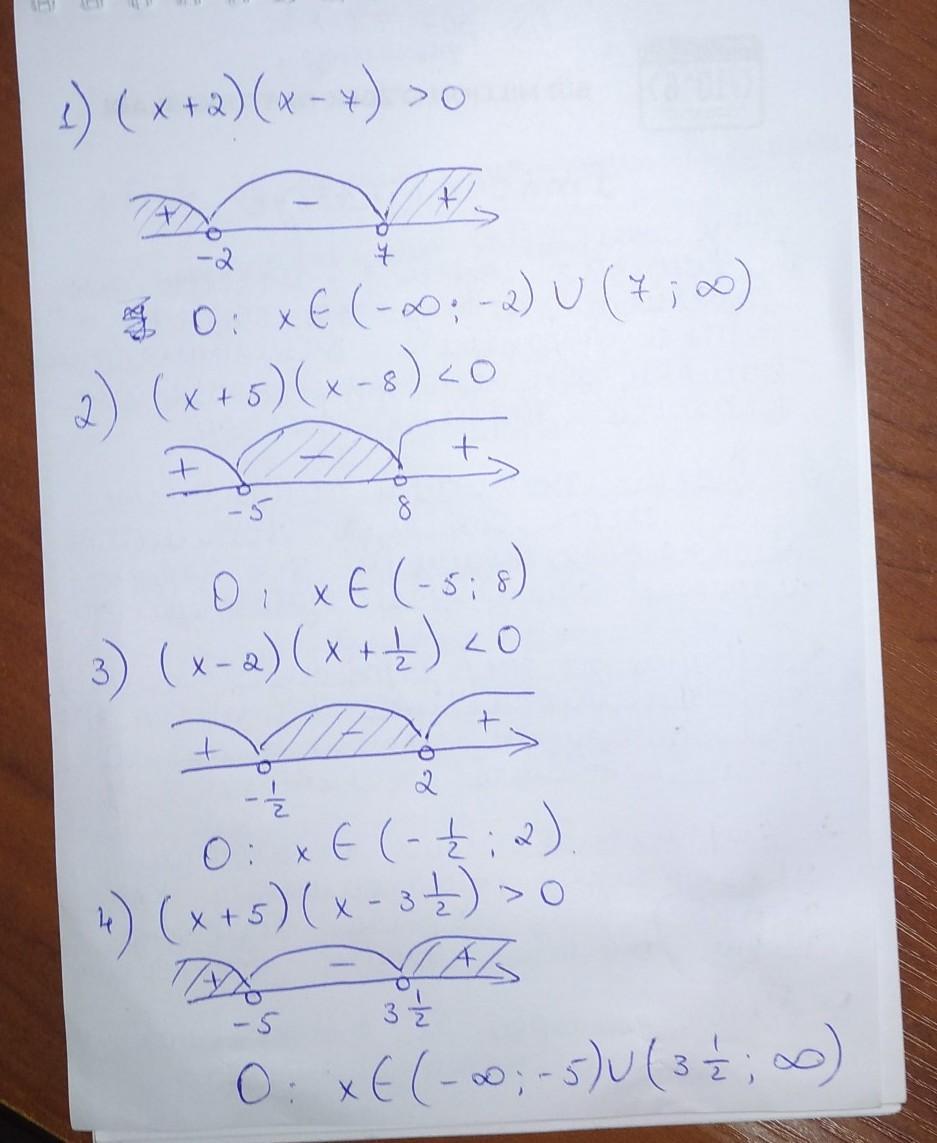 1) (x+2)(x-7) >0
+ - +
-2 7
O: x∈(-∞; -2)∪(7; ∞)
2) (x+5)(x-8)<0
+ - +
-5 8
O: x∈(-5; 8)
3) (x-2)(x+1/2)<0
+ - +
-1/2 2
O: x∈(-1/2; 2).
4) (x+5)(x-3 1/2)>0
+ - +
-5 3 1/2
O: x∈(-∞; -5)∪(3 1/2; ∞)